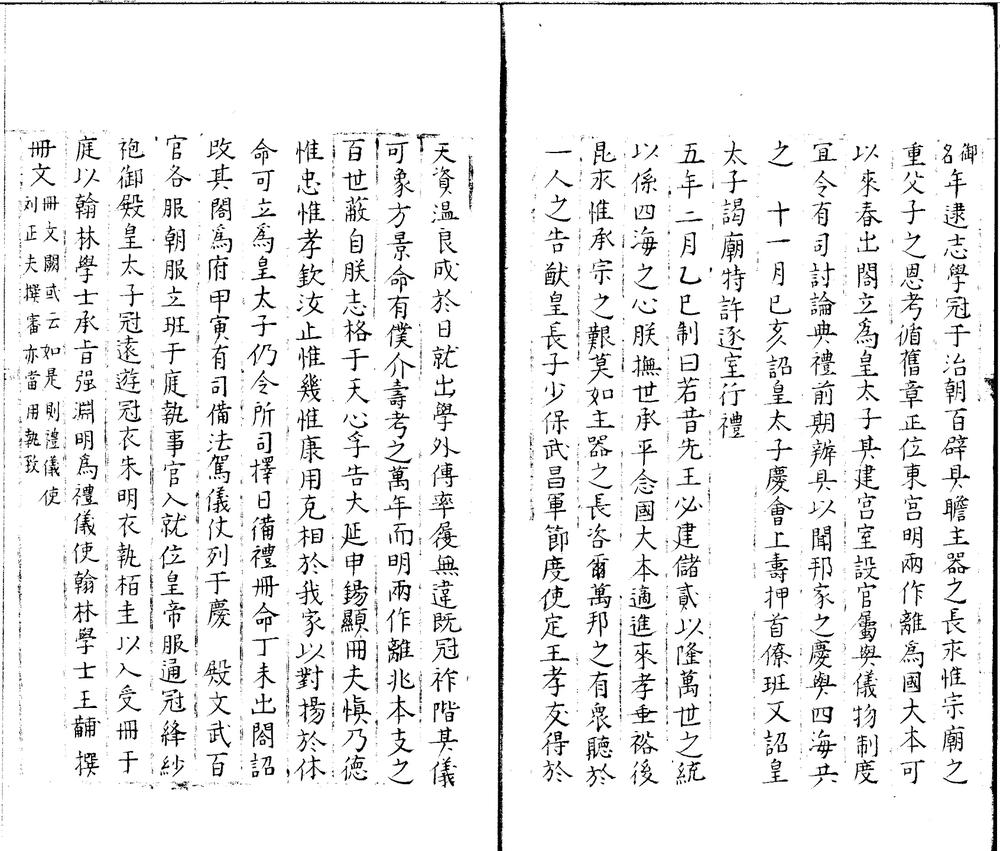 御名年逮志學冠于治朝百辟具瞻主器之長永惟宗廟之
重父子之恩考循舊章正位東宮明兩作離爲國大本可
以來春出閤立爲皇太子其建宮室設官屬與儀物制度
宜令有司討論典禮前期辦具以聞邦家之慶與四海共
之　十一月己亥詔皇太子慶會上壽押首僚班又詔皇
太子謁廟特許逐室行禮
五年二月乙巳制曰若昔先王必建儲貳以隆萬世之統
以係四海之心朕撫世承平念國大本適進來孝垂裕後
昆永惟承宗之艱莫如主器之長咨爾萬邦之有衆聽於
一人之告猷皇長子少保武昌軍節度使定王孝友得於
天資溫良成於日就出學外傅率履無違既冠祚階其儀
可象方景命有僕介壽考之萬年而明兩作離兆本支之
百世蔽自朕志格于天心孚告大延申錫顯冊夫愼乃德
惟忠惟孝欽汝止惟幾惟康用克相於我家以對揚於休
命可立爲皇太子仍令所司擇日備禮冊命丁未出閤詔
改其閤爲府甲寅有司備法駕儀仗列于慶　殿文武百
官各服朝服立班于庭執事官入就位皇帝服通冠絳紗
袍御殿皇太子冠遠遊冠衣朱明衣執栢圭以入受冊于
庭以翰林學士承旨强淵明爲禮儀使翰林學士王黼撰
冊文冊文闕或云如是則禮儀使
劉正夫撰審亦當用執政